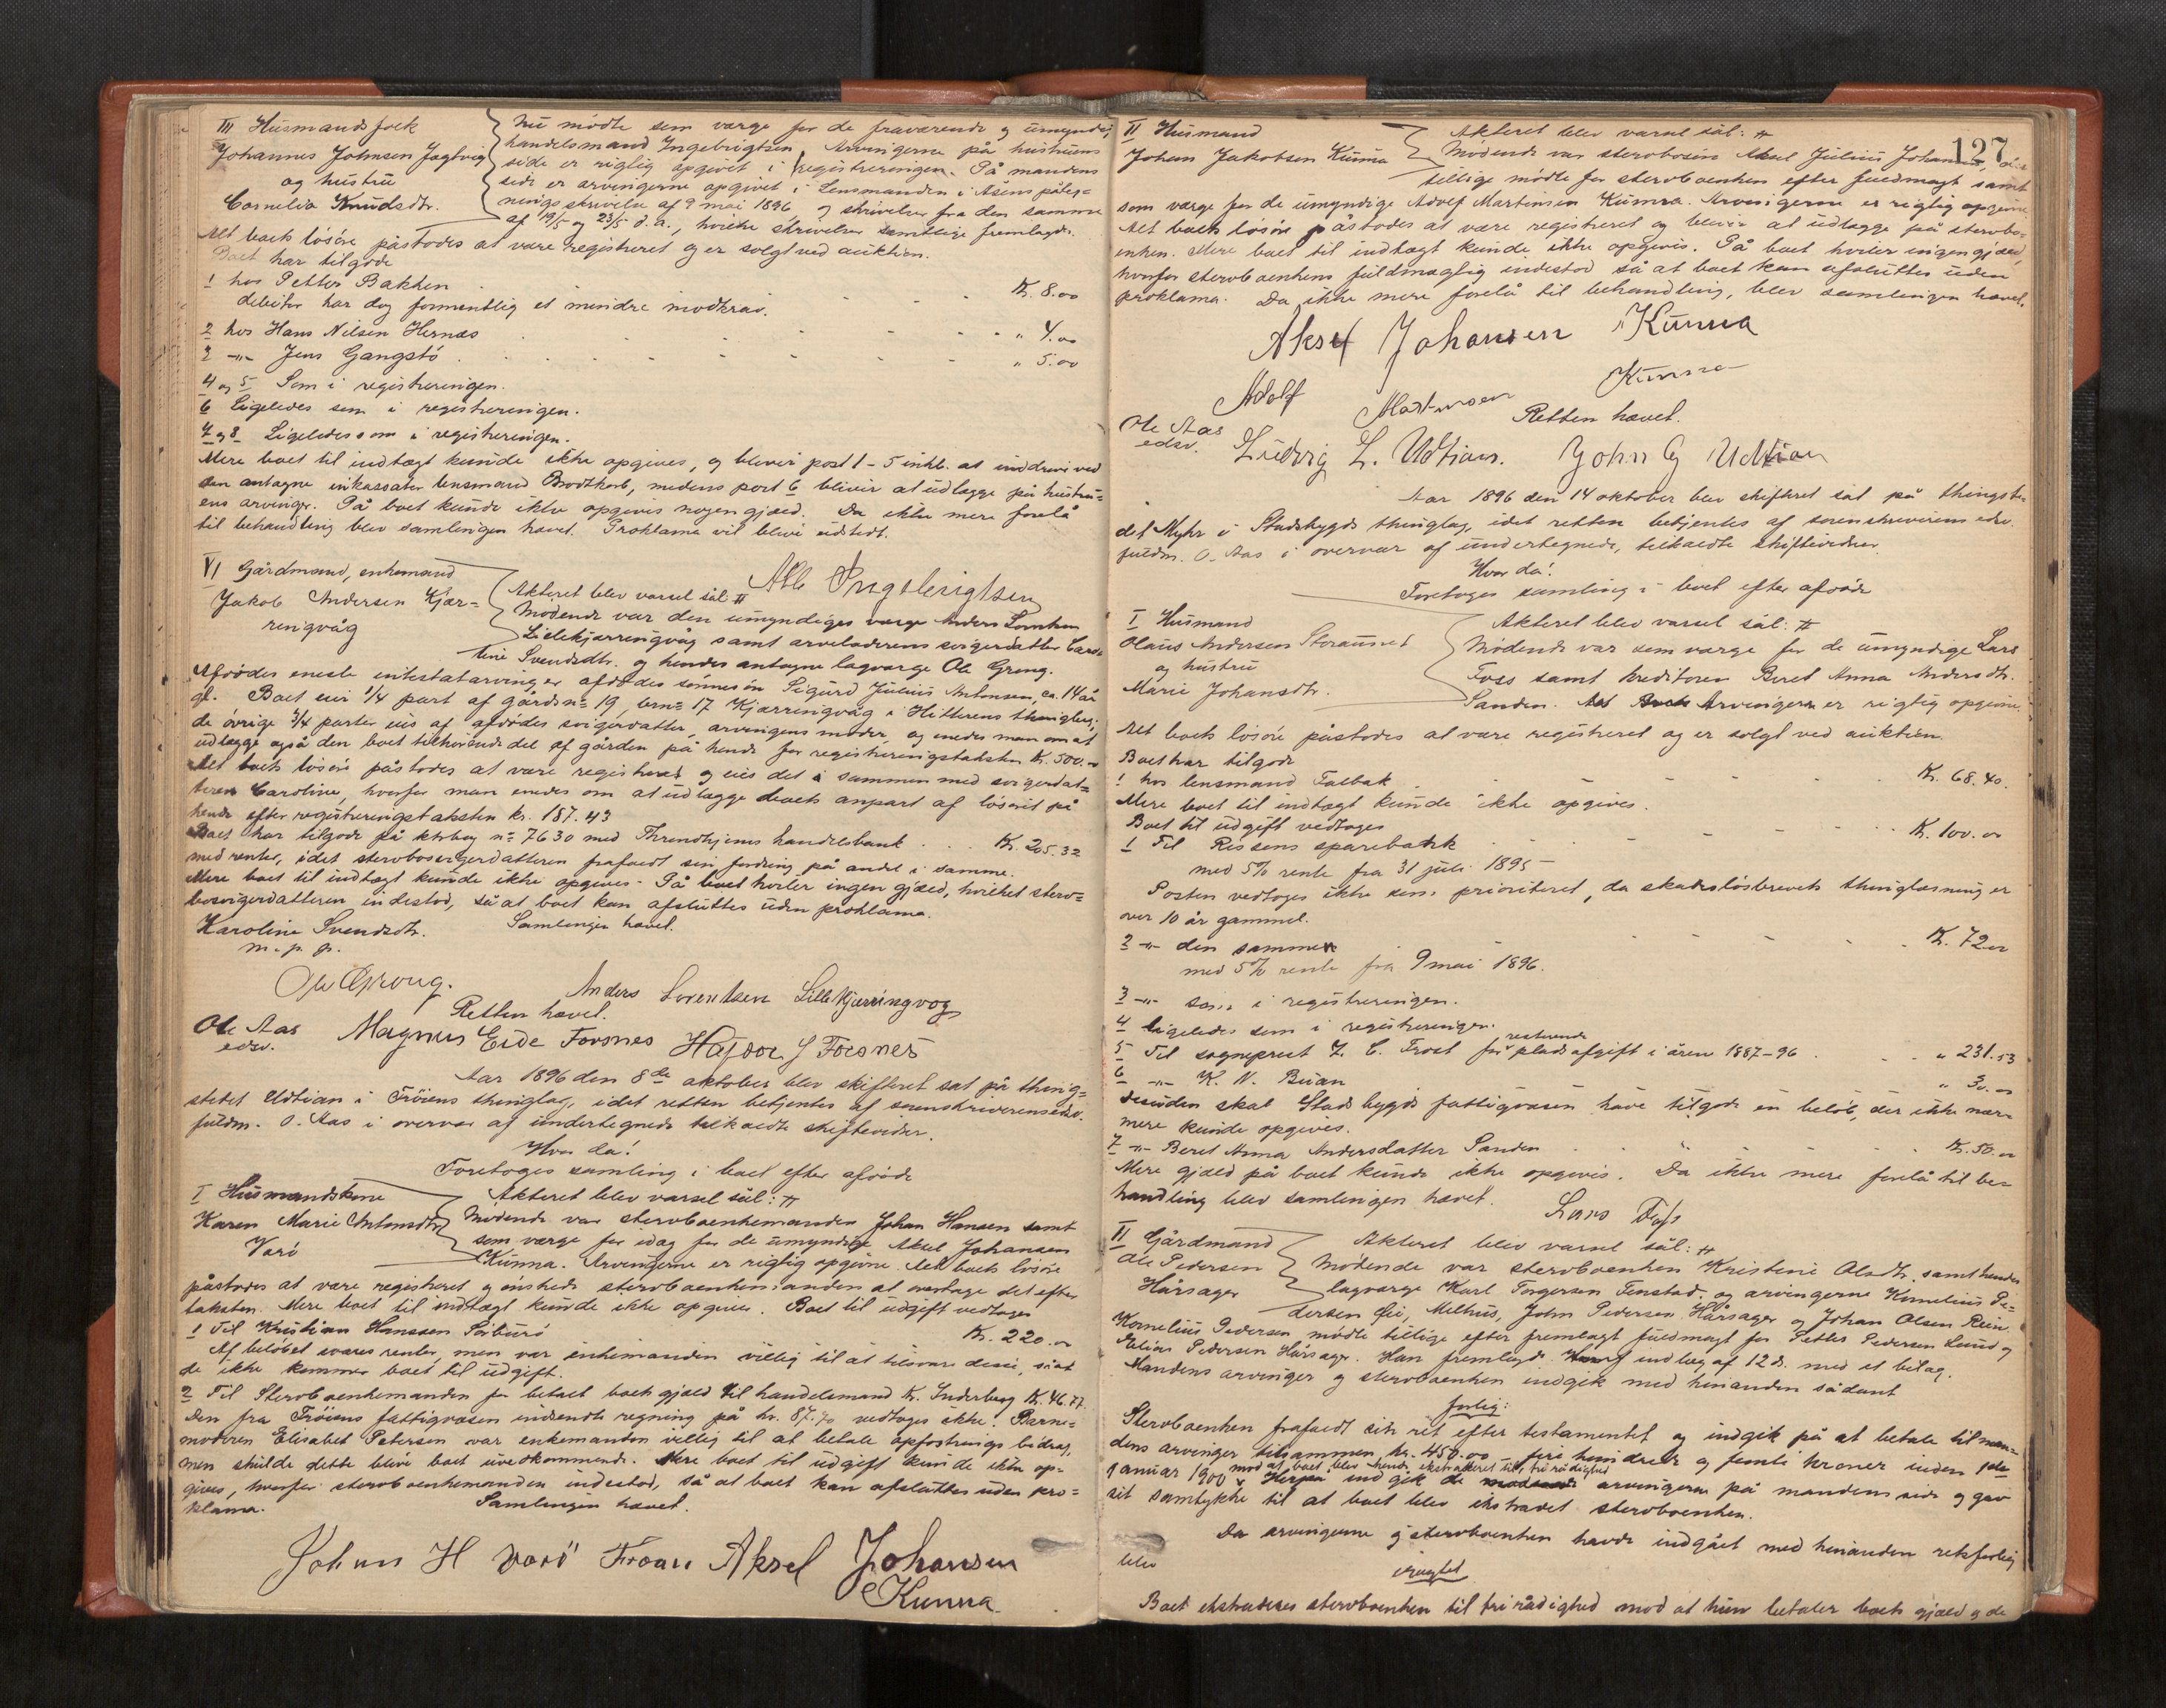 III Husmandsfolk
Johannes Johnsen Jagtvig
og hustru
Cornelia Knudsdtr.
Nu mødte som værge for de fraværende og umyndige,
handelsmand Ingebrigtsen. Arvingerne på hustruens
side er rigtig opgivet i registreringen. På mandens
side er arvingerne opgivet i Lensmanden i Asens påteg=
nings skrivelse af 9 mai 1896 og skrivelser fra den samme
af 19/5 og 23/5 d. a., hvilke skrivelser samtlige fremlagdes.
Alt boets løsøre påstodes at være registreret og er solgt ved auktion.
Boet har tilgode
1 hos Petter Bakken Kr. 8.00
debitor har dog formentlig et mindre modkrav.
2 hos Hans Nilsen Hernæs " 4.00
3 -"- Jens Gangstø " 5.00
4 og 5 Som i registreringen.
6 Ligeledes som i registreringen.
7 og 8 Ligeledes som i registreringen.
Mere boet til indtægt kunde ikke opgives, og bliver post 1-5 inkl. at inddrive ved
den antagne inkassator lensmand Brodtkorb, medens post 6 bliver at udlægge på hustru=
ens arvinger. På boet kunde ikke opgives nogen gjæld. Da ikke mere forelå
til behandling blev samlingen hævet. Proklama vil blive udstedt.
Alb Ingebrigtsen
VI Gårdmand, enkemand
Jakob Andersen Kjær=
ringvåg
Akteret blev varsel sål: #
Mødende var den umyndiges værge Anders Lorntsen
Lillekjærringvåg samt arveladerens svigerdatter Caro=
line Svendsdtr. og hendes antagne lagværge Ole Grong.
Afdødes eneste intestatarving er afdødes sønnesøn Sigurd Julius Antonsen, ca. 14 år
gl. Boet eier 1/4 part af gårds no 19, brno 17 Kjærringvåg i Hitterens thinglag;
de øvrige 3/4 parter eies af afdødes svigerdatter, arvingens moder, og enedes man om at
udlægge også den boet tilhørende del af gården på hende for registreringstaksten Kr. 500.00
Alt boets løsøre påstodes at være registreret og eies det i sammen med svigerdat=
teren Caroline, hvorfor man enedes om at udlægge boets anpart af løsøret på
hende efter registreringstaksten kr. 187.43
Boet har tilgode på ktrbog no 7630 med Throndhjems handelsbank Kr. 205.32
med renter, idet stervbosvigerdatteren frafaldt sin fordring på andel i samme.
Mere boet til indtægt kunde ikke opgives. På boet hviler ingen gjæld, hvilket sterv=
bosvigerdatteren indestod, så at boet kan afsluttes uden proklama.
Samlingen hævet.
Karoline Svendsdtr.
m. p. p.
Ole Grong. Anders Lorentsen Lillekjerringvog
Retten hævet.
Ole Aas
edsv.
Magnus Eide Forsnes Hajdor J Forsnes
Aar 1896 den 8de oktober blev skifteret sat på thing=
stedet Udtian i Frøiens thinglag, idet retten betjentes af sorenskriverens edsv.
fuldm. O. Aas i overvær af undertegnede tilkaldte skiftevidner.
Hvor da!
Foretoges samling i boet efter afdøde
I Husmandskone
Karen Marie Antonsdtr.
Varø
Akteret blev varsel sål: #
Mødende var stervboenkemanden Johan Hansen samt
som værge for idag for de umyndige Aksel Johansen
Kunna. Arvingerne er rigtig opgivne. Alt boets løsøre
påstodes at være registreret og ønskede stervboenkemanden at overtage det efter
taksten. Mere boet til indtægt kunde ikke opgives. Boet til udgift vedtages
1 Til Kristian Hanssen Sørburø Kr. 220.00
Af beløbet svares renter, men var enkemanden villig til at tilsvare disse, så at
de ikke kommer boet til udgift.
2 Til Stervboenkemanden for betalt boets gjæld til handelsmand Kr. Inderberg Kr. 46.77
Den fra Frøiens fattigvæsen indsendte regning på kr. 87.70 vedtoges ikke. Barne=
moderen Elisabet Petersen var enkemanden villig til at betale opfostringsbidrag,
men skulde dette blive boet uvedkommende. Mere boet til udgift kunde ikke op=
gives, hvorfor stervboenkemanden indestod, så at boet kan afsluttes uden pro=
klama. Samlingen hævet.
Johan H Varø Froan Aksel Johansen
Kunna
127
II Husmand
Johan Jakobsen Kunna
Akteret blev varsel sål: #
Mødende var stervbosøn Aksel Julius Johansen, der
tillige mødte for stervboenken efter fuldmagt samt
som værge for de umyndige Adolf Martinsen Kunna. Arvingerne er rigtig opgivne
Alt boets løsøre påstodes at være registreret og bliver at udlægge på stervbo-
enken. Mere boet til indtægt kunde ikke opgives. På boet hviler ingen gjæld,
hvorfor stervboenkens fuldmægtig indestod så at boet kan afsluttes uden
proklama. Da ikke mere forelå til behandling, blev samlingen hævet.
Aksel Johansen Kunna
Adolf Martinsen Kunna
Retten hævet.
Ole Aas
edsv.
Ludvig L. Udtian. John G Udtian
Aar 1896 den 14 oktober blev skifteret sat på thingste-
det Myhr i Stadsbygds thinglag, idet retten betjentes af sorenskriverens edsv.
fuldm. O. Aas i overvær af undertegnede, tilkaldte skiftevidner
Hvor da!
Foretoges samling i boet efter afdøde
I Husmand
Olaus Andersen Storaunet
og hustru
Marie Johansdtr.
Akteret blev varsel sål: #
Mødende var som værge for de umyndige Lars
Foss samt kreditoren Beret Anna Andersdtr.
Sanden. Arvingerne er rigtig opgivne.
Alt boets løsøre påstodes at være registreret og er solgt ved auktion.
Boet har tilgode
1 hos lensmand Falbak Kr. 68.40.
Mere boet til indtægt kunde ikke opgives.
Boet til udgift vedtoges
1 Til Rissens sparebank Kr. 100.00
med 5% rente fra 31 juli 1895
Posten vedtoges ikke som prioriteret, da skadesløsbrevets thinglæsning er
over 10 år gammel.
2 -"- den samme Kr. 72.00
med 5% rente fra 9 mai 1896.
3 -"- som i registreringen.
4 ligeledes som i registreringen.
5 Til sogneprest Z. C. Frost for resterende pladsafgift i åren 1887-96 " 231.53
6 -"- K. N. Buan " 30.00
Desuden skal Stadsbygds fattigvæsen have tilgode en beløb, der ikke nær-
mere kunde opgives.
7 -"- Beret Anna Andersdatter Sanden Kr. 50.00
Mere gjæld på boet kunde ikke opgives. Da ikke mere forelå til be-
handling blev samlingen hævet.
Lars Foss
II Gårdmand
Ole Pedersen
Hårsager
Akteret blev varsel sål: #
Mødende var stervboenken Kristine Olsdtr. samt hendes
lagværge Karl Torgersen Fenstad og arvingerne Kornelius Pe=
dersen Øie, Melhus, John Pedersen Hårsager og Johan Olsen Rein.
Kornelius Pedersen mødte tillige efter fremlagt fuldmagt for Petter Pedersen Lund og
Elias Pedersen Hårsager. Han fremlagde indlæg af 12 ds. med et bilag.
Mandens arvinger og stervboenken indgik med hinanden sådant
forlig:
Stervboenken frafaldt sin ret efter testamentet og indgik på at betale til man=
dens arvinger tilsammen kr. 450.00 firi hundrede og femti kroner inden 1ste
januar 1900 mod at boet blev hende ekstraderet til fri rådighed. Herpå indgik de arvingerne på mandens side og gav
sit samtykke til at boet blev ekstraderet stervboenken.
Da arvingerne og stervboenken havde indgået med hinanden retsforlig
blev
eragtet
Boet ekstraderes stervboenken til fri rådighed mod at hun betaler boets gjæld og de